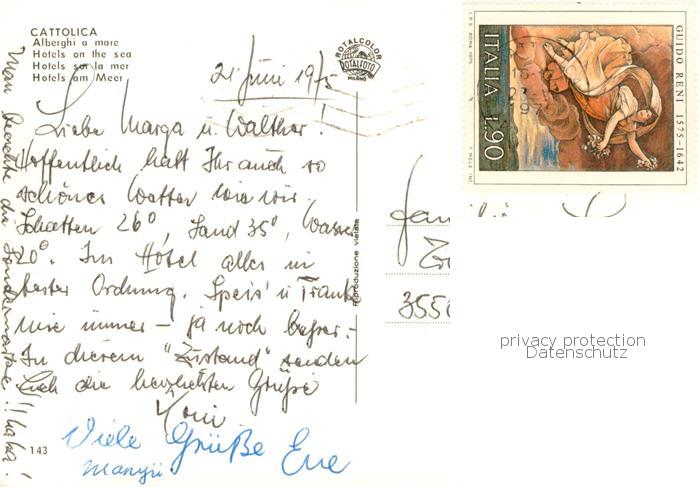 CATTOLICA
Alberghi a mare
Hotels on the sea
Hotels sur la mer
Hotels am Meer
ROTALCOLOR
ROTALFOTO
MILANO
21. Juni 1975
Liebe Marga u. Walther!
Hoffentlich habt Ihr auch so
schönes Wetter wie wir.
Schatten 26°, Sand 35°, Wasser
20°. Im Hotel alles in
bester Ordnung. Speis' u Trank
wie immer – ja noch besser.-
In diesem "Zustand" senden
Euch die herzlichsten Grüße
Viele Grüße Eue
Man beachte die Sondermarke!! haha!
143
Riproduzione vietata
GUIDO RENI 1575-1642
ITALIA L.90
I.P.S. ROMA 1975
T. MELE INC.
355
privacy protection
Datenschutz